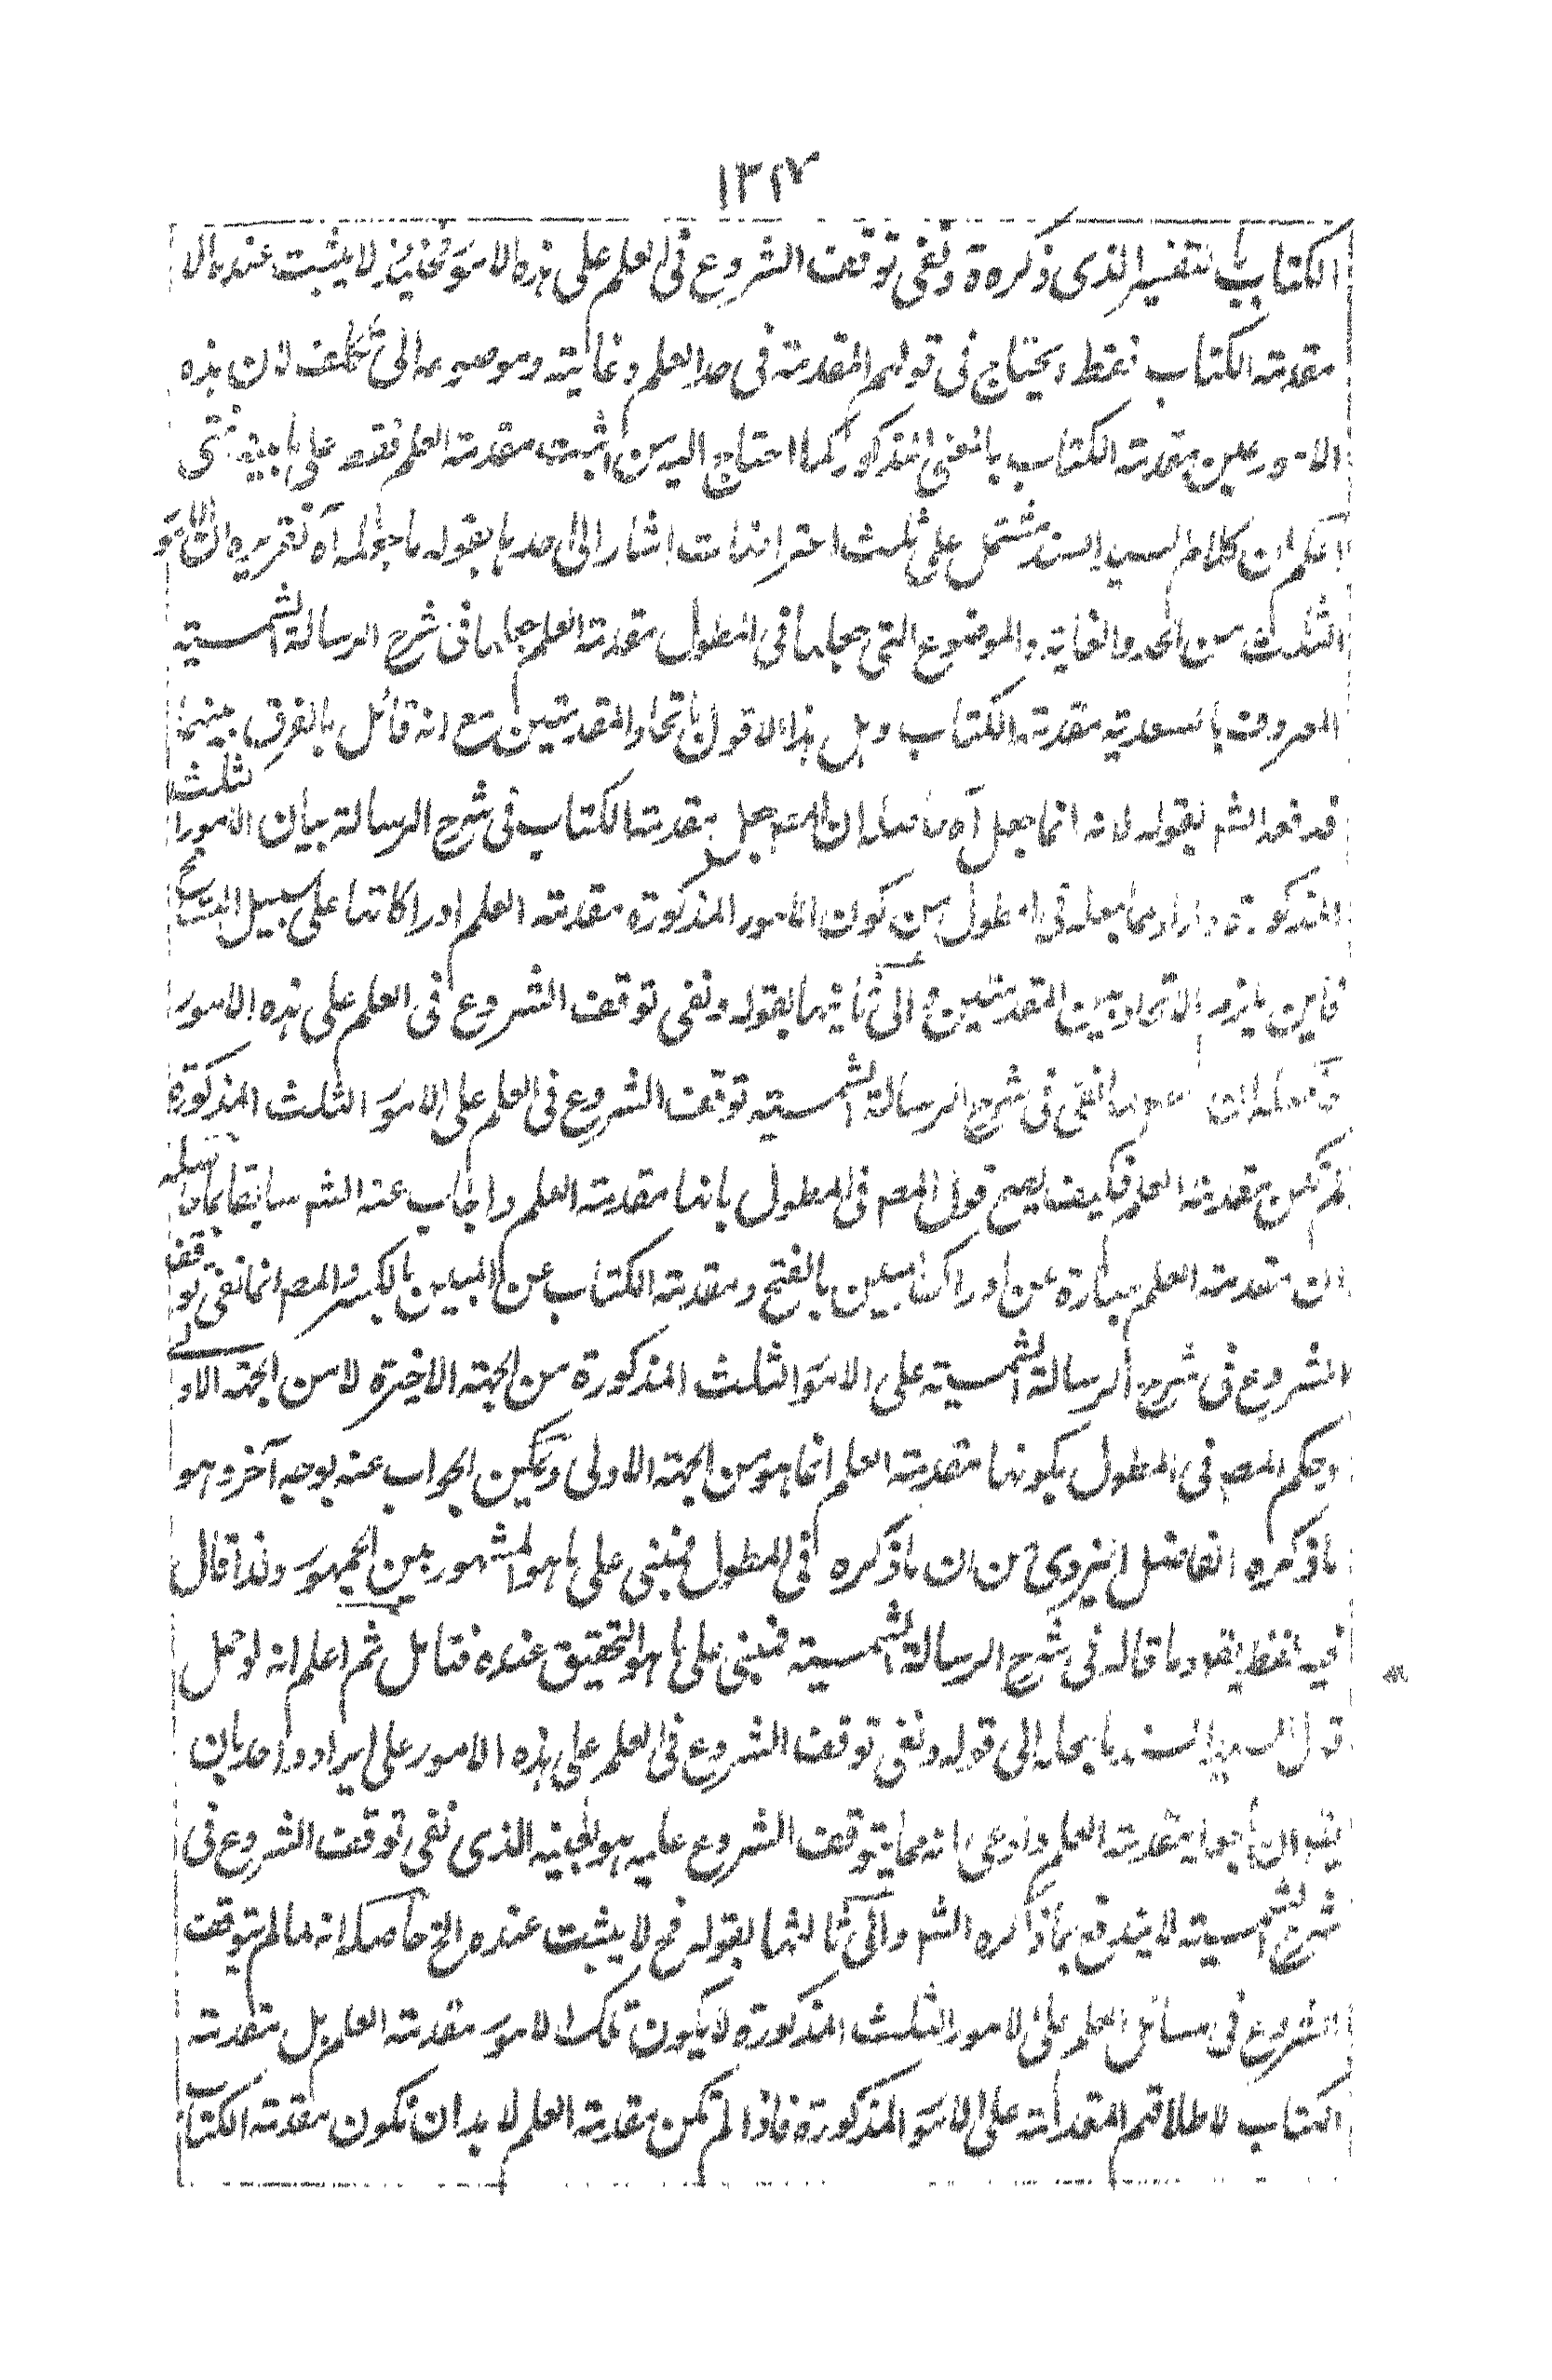 ١٣٢٧
الكتاب بالتفسير الذى ذكره ة ونفى توقف الشروع فى العلم على هذه الامور فحينئذ لا يثبت عنده الا
مقدمة الكتاب فقط ويحتاج فى قولهم المقدمة فى حد العلم وغايته وموضوعه الى تكلف لان هذه
الامور عين مقدمة الكتاب بالمعنى المذكور كما احتاج اليه من اثبت مقدمة العلم فقط على ما بينه
اعلم ان كلام السيد السند مشتمل على ثلث اعتراضات اشار الى احدها بقوله ما جوله آه تقريره ان الامور
الثلث من الحد والغاية والموضوع التى جعلها فى المطول مقدمة العلم جعلها فى شرح الرسالة الشمسية
المعروف بالسعدية مقدمة الكتاب وهل هذا الا قول باتحاد المقدمتين مع انه قائل بالفرق بينهما
فدفعه الش بقوله لانه انما جعل آه حاصله ان المص جعل مقدمة الكتاب فى شرح الرسالة بيان الامور الثلث
المذكورة واراد بما جعله فى المطول من كون الامور المذكورة مقدمة العلم ادراكاتها على سبيل التسامح
فاين يلزم الاتحاد بين المقدمتين والى ثانيها بقوله ونفى توقف الشروع فى العلم على هذه الامور
فى شرح الرسالة الشمسية توقف الشروع فى العلم على الامور الثلث المذكورة
لم تكن مقدمة العلم فكيف يصح قول المص فى المطول بانها مقدمة العلم واجاب عنه الش سابقا بما حاصله
ان مقدمة العلم عبارة عن ادراك المبين بالفتح ومقدمة الكتاب عن المبين بالكسر والمص انما نفى توقف
الشروع فى شرح الرسالة الشمسية على الامور الثلث المذكورة من الجهة الاخيرة لا من الجهة الاولى
وحكم المص فى المطول بكونها مقدمة العلم انما هو من الجهة الاولى ويمكن الجواب عنه بوجه آخر وهو
ما ذكره الفاضل اليزدى من ان ما ذكره فى المطول فمبنى على ما هو المشهور بين الجمهور ولذا قال
فيه لفظ يقه وما قاله فى شرح الرسالة الشمسية فمبنى على ما هو التحقيق عنده فتامل ثم اعلم انه لو حمل
قول السيد السند ما جعله الى قوله ونفى توقف الشروع فى العلم على هذه الامور على ايراد واحد بان
يقه ان ما جعله مقدمة العلم وادعى انه مما يتوقف الشروع عليه هو بعينه الذى نفى توقف الشروع فى
شرح الشمسية لا يندفع بما ذكره الش والى ثالثها بقوله فح لا يثبت عنده الخ حاصله انه ما لم يتوقف
الشروع فى مسائل العلم على الامور الثلث المذكورة لا يكون تلك الامور مقدمة العلم بل مقدمة
الكتاب لاطلاقهم المقدمة على الامور المذكورة فاذا لم تكن مقدمة العلم لا بد ان تكون مقدمة الكتاب